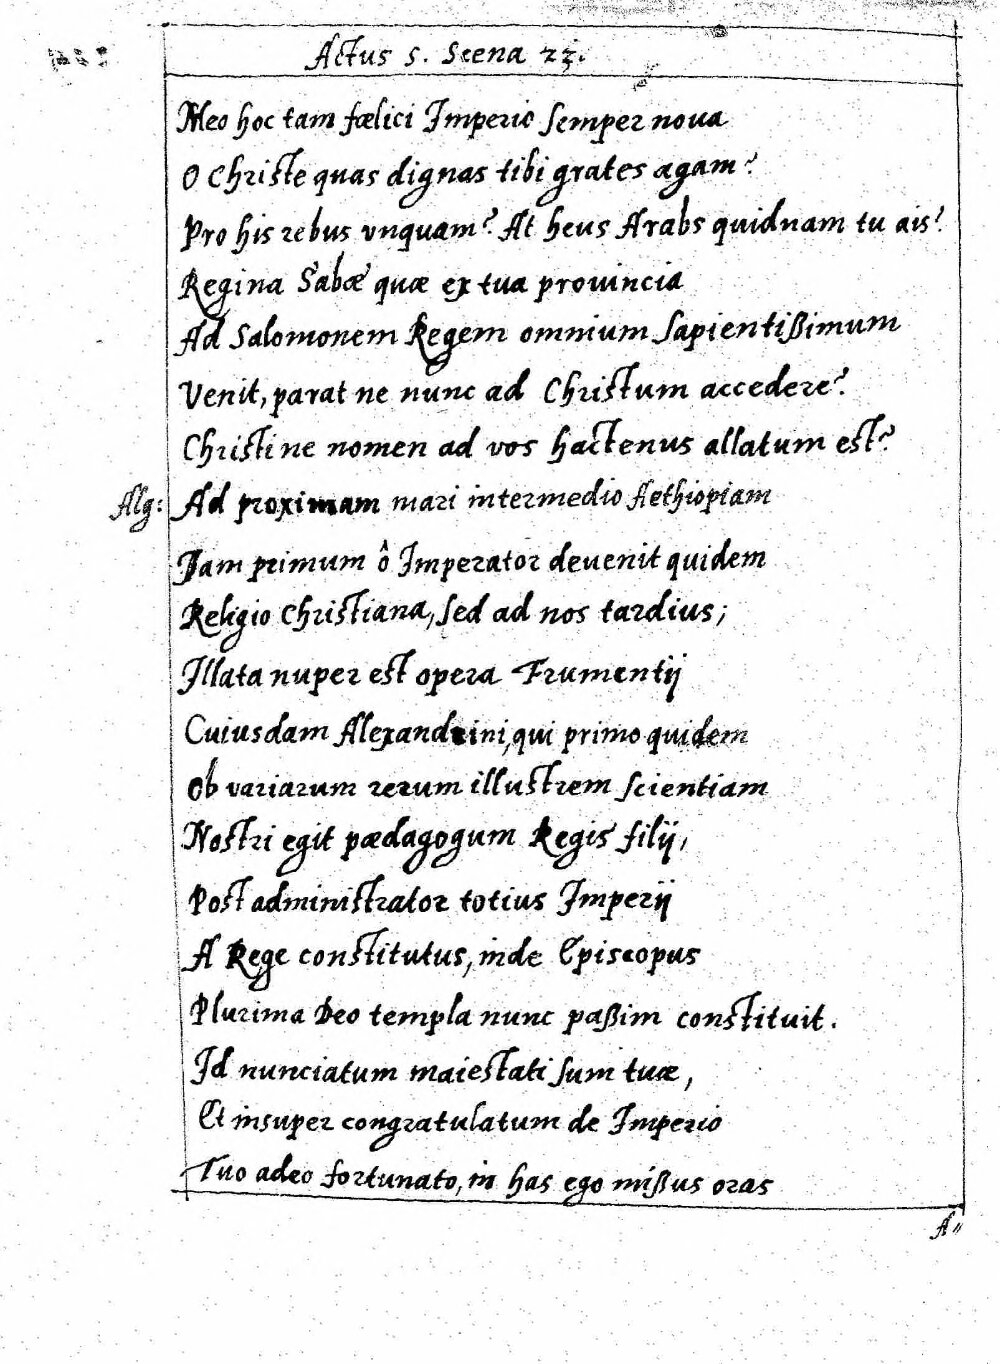 Actus 5. Scena 22.
Meo hoc tam fælici Imperio semper noua
O Christe quas dignas tibi grates agam?
Pro his rebus vnquam? At heus Arabs quidnam tu ais?
Regina Sabæ quæ ex tua prouincia
Ad Salomonem Regem omnium sapientißimum
Venit, parat ne nunc ad Christum accedere?
Christi ne nomen ad vos hactenus allatum est?
Alg: Ad proximam mari intermedio Aethiopiam
Jam primum ô Imperator deuenit quidem
Religio Christiana, sed ad nos tardius;
Illata nuper est opera Frumentij
Cuiusdam Alexandrini, qui primo quidem
Ob variarum rerum illustrem scientiam
Nostri egit pædagogum Regis filij,
Post administrator totius Imperij
A Rege constitutus, inde Episcopus
Plurima Deo templa nunc paßim constituit.
Id nunciatum maiestati sum tuæ,
Et insuper congratulatum de Imperio
Tuo adeo fortunato, in has ego mißus oras
A〃